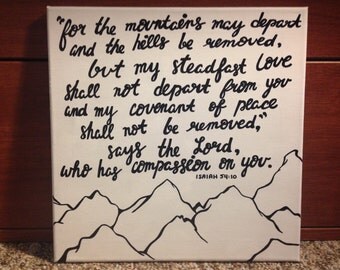 "for the mountains may depart
and the hills be removed,
but my steadfast love
shall not depart from you
and my covenant of peace
shall not be removed,"
says the Lord,
who has compassion on you.
ISAIAH 54:10